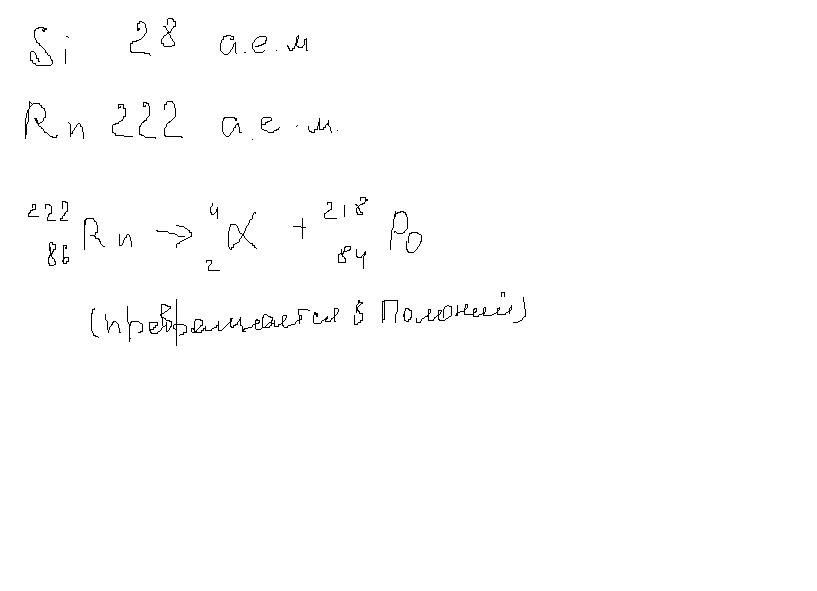 Si 28 а.е.м
Rn 222 а.е.м.
²²²₈₆Rn → ⁴₂α + ²¹⁸₈₄Po
(превращается в Полоний)